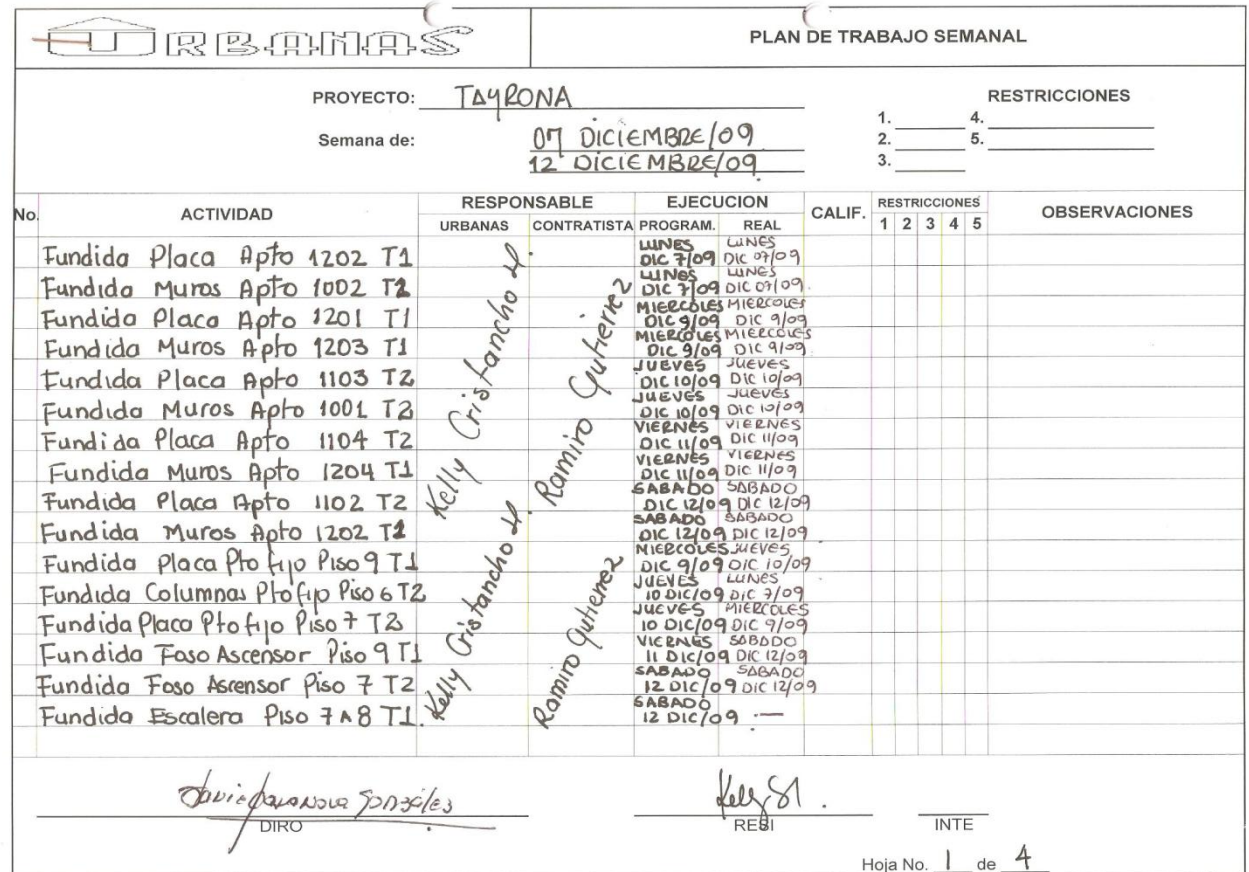 URBANAS
PLAN DE TRABAJO SEMANAL
PROYECTO: TAYRONA
RESTRICCIONES
Semana de: 07 DICIEMBRE/09
12 DICIEMBRE/09
1. 4.
2. 5.
3.
No. ACTIVIDAD RESPONSABLE EJECUCION CALIF. RESTRICCIONES OBSERVACIONES
URBANAS CONTRATISTA PROGRAM. REAL 1 2 3 4 5
Kelly Cristancho
Ramiro Gutierrez
Fundida Placa Apto 1202 T1 LUNES DIC 7/09 LUNES DIC 07/09
Fundida Muros Apto 1002 T2 LUNES DIC 7/09 LUNES DIC 07/09.
Fundida Placa Apto 1201 T1 MIERCOLES DIC 9/09 MIERCOLES DIC 9/09
Fundida Muros Apto 1203 T1 MIERCOLES DIC 9/09 MIERCOLES DIC 9/09
Fundida Placa Apto 1103 T2 JUEVES DIC 10/09 JUEVES DIC 10/09
Fundida Muros Apto 1001 T2 JUEVES DIC 10/09 JUEVES DIC 10/09
Fundida Placa Apto 1104 T2 VIERNES DIC 11/09 VIERNES DIC 11/09
Fundida Muros Apto 1204 T1 VIERNES DIC 11/09 VIERNES DIC 11/09
Fundida Placa Apto 1102 T2 SABADO DIC 12/09 SABADO DIC 12/09
Fundida Muros Apto 1202 T1 SABADO DIC 12/09 SABADO DIC 12/09
Kelly Cristancho
Ramiro Gutierrez
Fundida Placa Pto fijo Piso 9 T1 MIERCOLES DIC 9/09 JUEVES DIC 10/09
Fundida Columnas Pto fijo Piso 6 T2 JUEVES 10 DIC/09 LUNES DIC 7/09
Fundida Placa Pto fijo Piso 7 T2 JUEVES 10 DIC/09 MIERCOLES DIC 9/09
Fundida Foso Ascensor Piso 9 T1 VIERNES 11 DIC/09 SABADO DIC 12/09
Fundida Foso Ascensor Piso 7 T2 SABADO 12 DIC/09 SABADO DIC 12/09
Fundida Escalera Piso 7 A 8 T1. SABADO 12 DIC/09 -
DIRO RESI INTE
Hoja No. 1 de 4